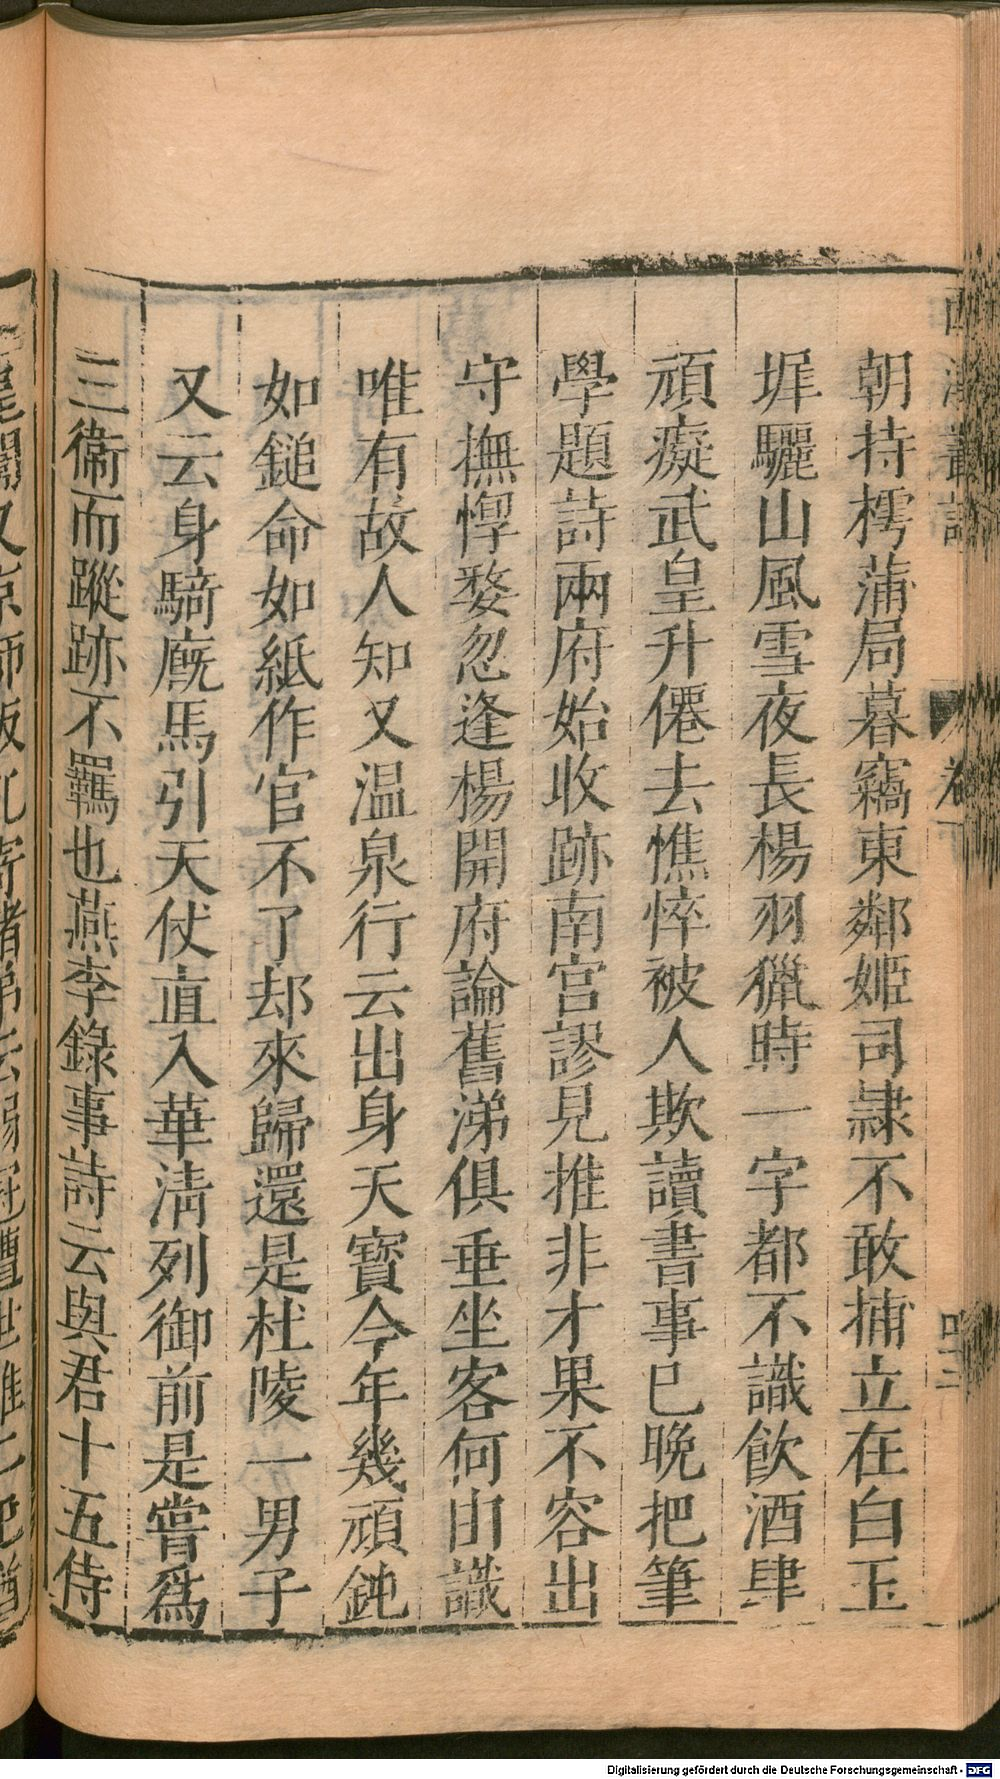 朝持樗蒲局暮竊東鄰姬司隷不敢捕立在白玉
墀驪山風雪夜長楊羽獵時一字都不識飮酒肆
頑癡武皇升僊去憔悴被人欺讀書事已晩把筆
學題詩兩府始收跡南宮謬見推非才果不容出
守撫惸嫠忽逢楊開府論舊涕俱垂坐客何由識
唯有故人知又温泉行云出身天寶今年幾頑鈍
如鎚命如紙作官不了却來歸還是杜陵一男子
又云身騎廐馬引天仗直入華淸列御前是嘗爲
三衞而蹤跡不羈也燕李錄事詩云與君十五侍
Digitalisierung gefördert durch die Deutsche Forschungsgemeinschaft - DFG